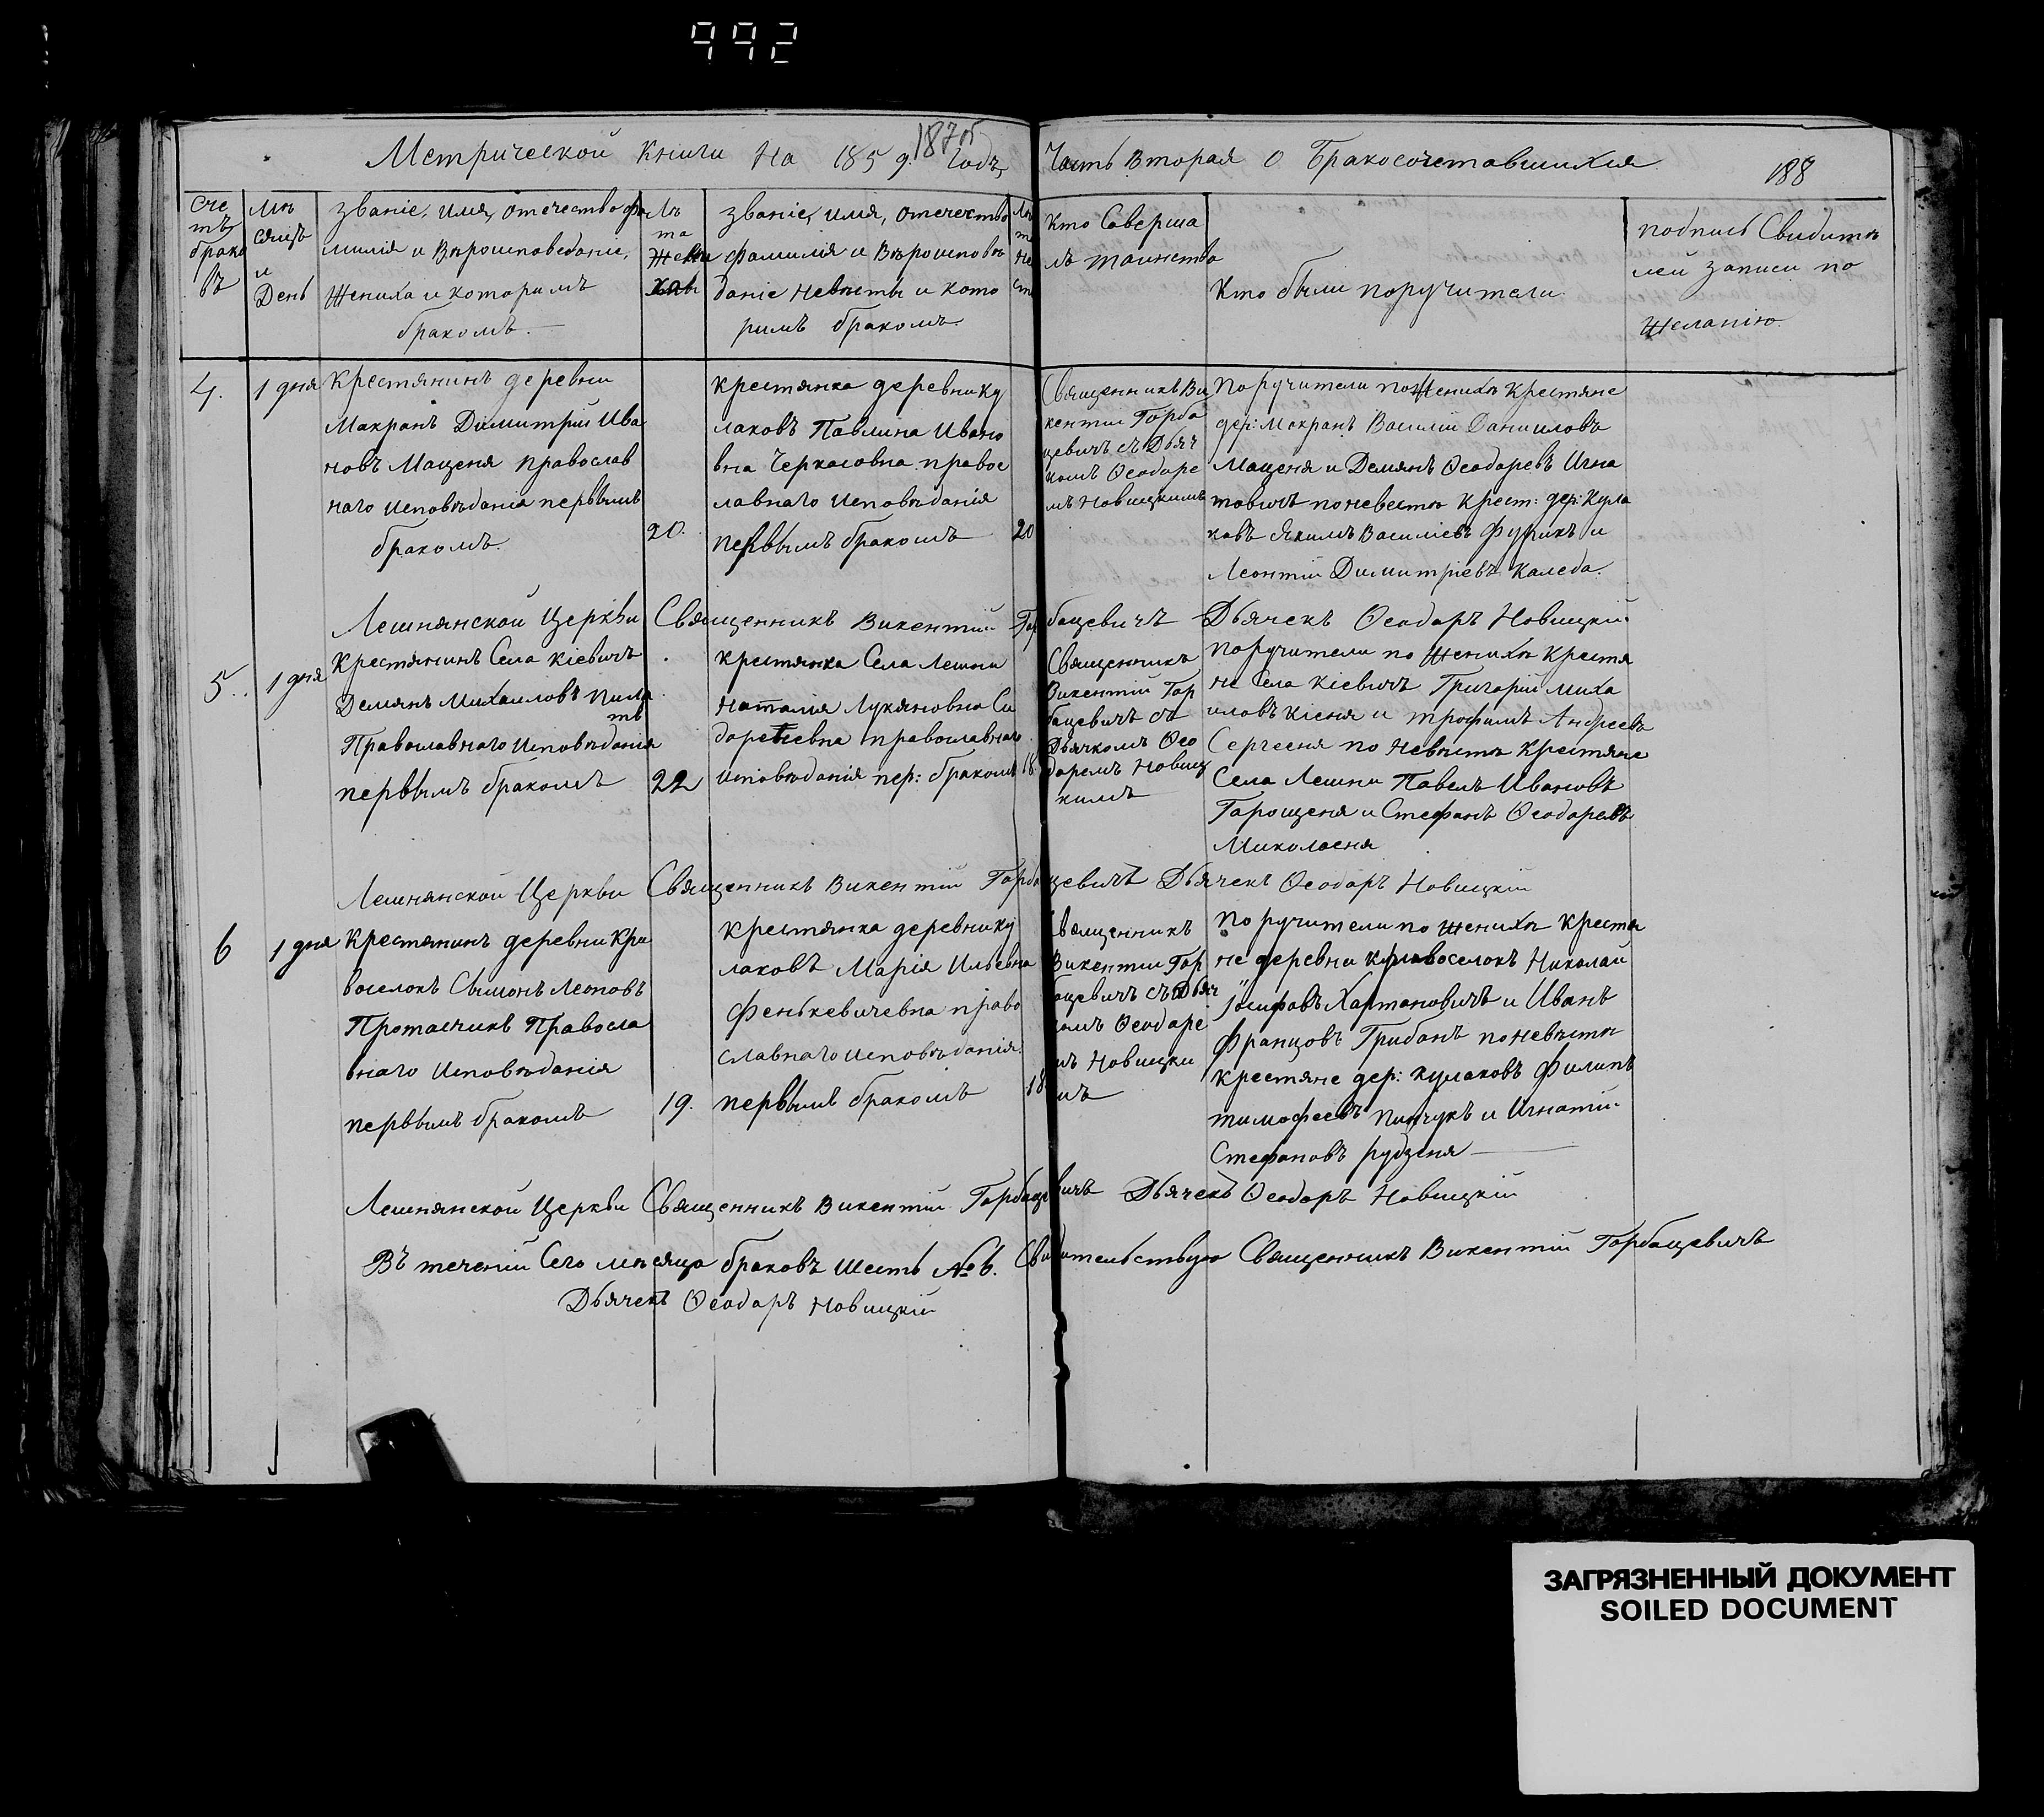 992
Метрической книги на 1859. годъ
187об
Часть вторая о Бракосочетавшихся
188
Сче
тъ
брако
въ
Мѣ
сяцъ
и
День
Званіе, имя, отечество фа
милія и Вѣроисповеданіе,
Жениха и которимъ
бракомъ.
Лѣ
та
Жени
Званіе, имя, отечество
фамилія и Вѣроисповѣ
даніе невѣсты и кото
римъ бракомъ.
Кто Соверша
лъ таинство
Кто были поручители
подпись Свидите
лей записи по
Желанію.
4.
1 дня
Крестянинъ деревни
Макранъ Димитрій Ива
новъ Маценя православ
наго исповѣданія первымъ
бракомъ.
20.
крестянка деревни Ку
лаковъ Павлина Ивано
вна Черкасовна правос
лавнаго исповѣданія
первымъ бракомъ
20
Священникъ Ви
кентій Горба
цевичъ съ Дьяч
комъ Ѳеодоро
мъ Новицкимъ
Поручители по Женихѣ Крестяне
дер: Макранъ Василій Даниловъ
Маценя и Демянъ Ѳеодоревъ Игна
товичъ по невестѣ Крест: дер: Кула
ковъ Якимъ Василіевъ Фурикъ и
Леонтій Димитріевъ Каледа.
Лешнянской Церкви Священникъ Викентій Горбацевичъ Дьячекъ Ѳеодоръ Новицкій
5.
1 дня
Крестянинъ Села Кіевичъ
Демянъ Михаиловъ Пила
ть
Православнаго исповѣданія
первымъ бракомъ
22
крестянка Села Лешни
Наталія Лукяновна Си
доревна православнаго
исповѣданія пер: бракомъ
18.
Священникъ
Викентій Гор
бацевичъ съ
Дьячкомъ Ѳео
доремъ Новиц
кимъ
Поручители по Женихѣ Крестя
не Села Кіевичъ Григорій Миха
иловъ Кіеня и Трофимъ Андреевъ
Сергееня по невѣстѣ Крестяне
Села Лешни Павелъ Ивановъ
Горощеня и Стефанъ Ѳеодоревъ
Миколаеня
Лешнянской Церкви Священникъ Викентій Горбацевичъ Дьячекъ Ѳеодоръ Новицкій
6
1 дня
Крестянинъ деревни Кри
воселокъ Сымонъ Леоновъ
Протасчикъ Правосла
внаго исповѣданія
первымъ бракомъ
19.
Крестянка деревни Ку
лаковъ Марія Ильевна
Фенькевичевна право
славнаго исповѣданія.
первымъ бракомъ
18
Священникъ
Викентій Гор
бацевичъ съ Дьяч
комъ Ѳеодоро
мъ Новицки
мъ
Поручители по Женихѣ Крестя
не деревни Кривоселокъ Николай
Іосифовъ Хартановичъ и Иванъ
Францовъ Грибанъ по невѣстѣ
крестяне дер: Кулаковъ Филипъ
Тимофеевъ Пинчукъ и Игнатій
Стефановъ Рудзеня
Лешнянской Церкви Священникъ Викентій Горбацевичъ Дьячекъ Ѳеодоръ Новицкій
Въ теченій Сего мѣсяца браковъ шесть №6. Свидетельствую Священникъ Викентій Горбацевичъ
Дьячекъ Ѳеодоръ Новицкій
ЗАГРЯЗНЕННЫЙ ДОКУМЕНТ
SOILED DOCUMENT